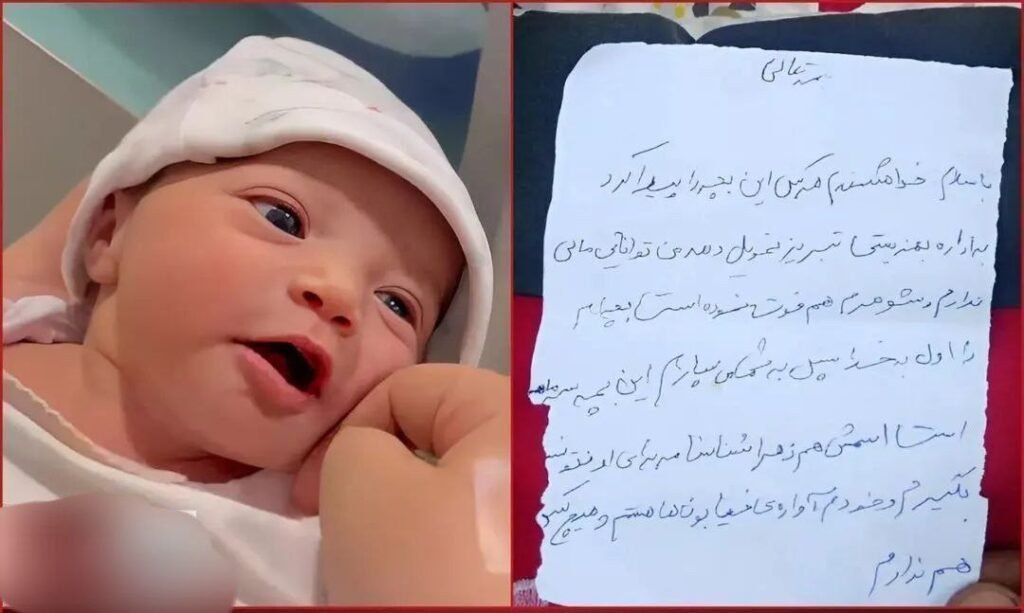 بسمه تعالی
باسلام خواهشمندم هرکس این بچه را پیدا کرد
به اداره بهزیستی تبریز تحویل دهد من توانایی مالی
ندارم و شوهرم هم فوت شده است بچه ام
را اول به خدا سپس به شما می سپارم این بچه سه ماهه
است اسمش هم زهرا شناسنامه برای او نتونستم
بگیرم و خودم آواره ی خیابونها هستم و هیچ کسی
هم ندارم